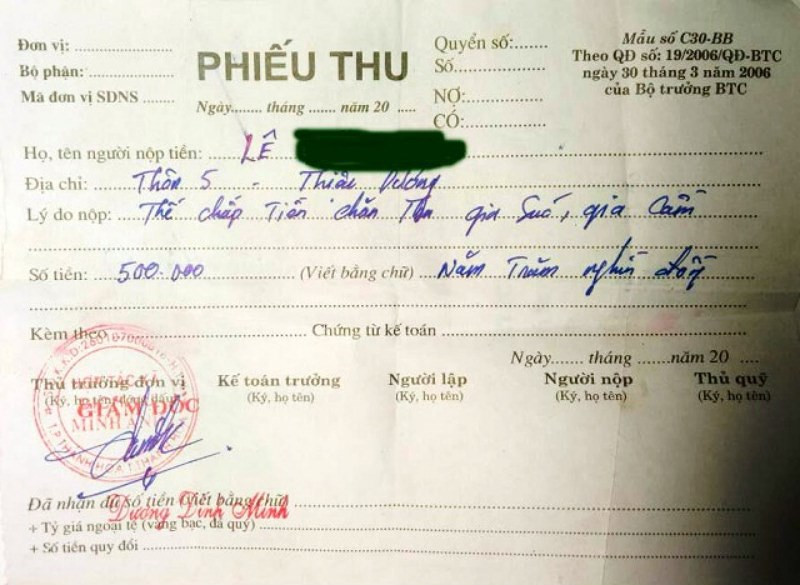 Đơn vị: Quyển số: Mẫu số C30-BB
Bộ phận: PHIẾU THU Số Theo QĐ số: 19/2006/QĐ-BTC
Mã đơn vị SDNS ngày 30 tháng 3 năm 2006
Ngày tháng năm 20 NỢ: của Bộ trưởng BTC
CÓ:
Họ, tên người nộp tiền: LÊ
Địa chỉ: Thôn 5 - Thiệu Dương
Lý do nộp: Thế chấp Tiền chăn gia Suc, gia Cầm
Số tiền: 500.000 (Viết bằng chữ) Năm Trăm nghìn đồng
Kèm theo Chứng từ kế toán
Ngày tháng năm 20
Thủ trưởng đơn vị Kế toán trưởng Người lập Người nộp Thủ quỹ
(Ký, họ tên, đóng dấu) (Ký, họ tên) (Ký, họ tên) (Ký, họ tên) (Ký, họ tên)
GIÁM ĐỐC
Đã nhận đủ số tiền (Viết bằng chữ)
Dương Đình Minh
+ Tỷ giá ngoại tệ (vàng bạc, đá quý)
+ Số tiền quy đổi